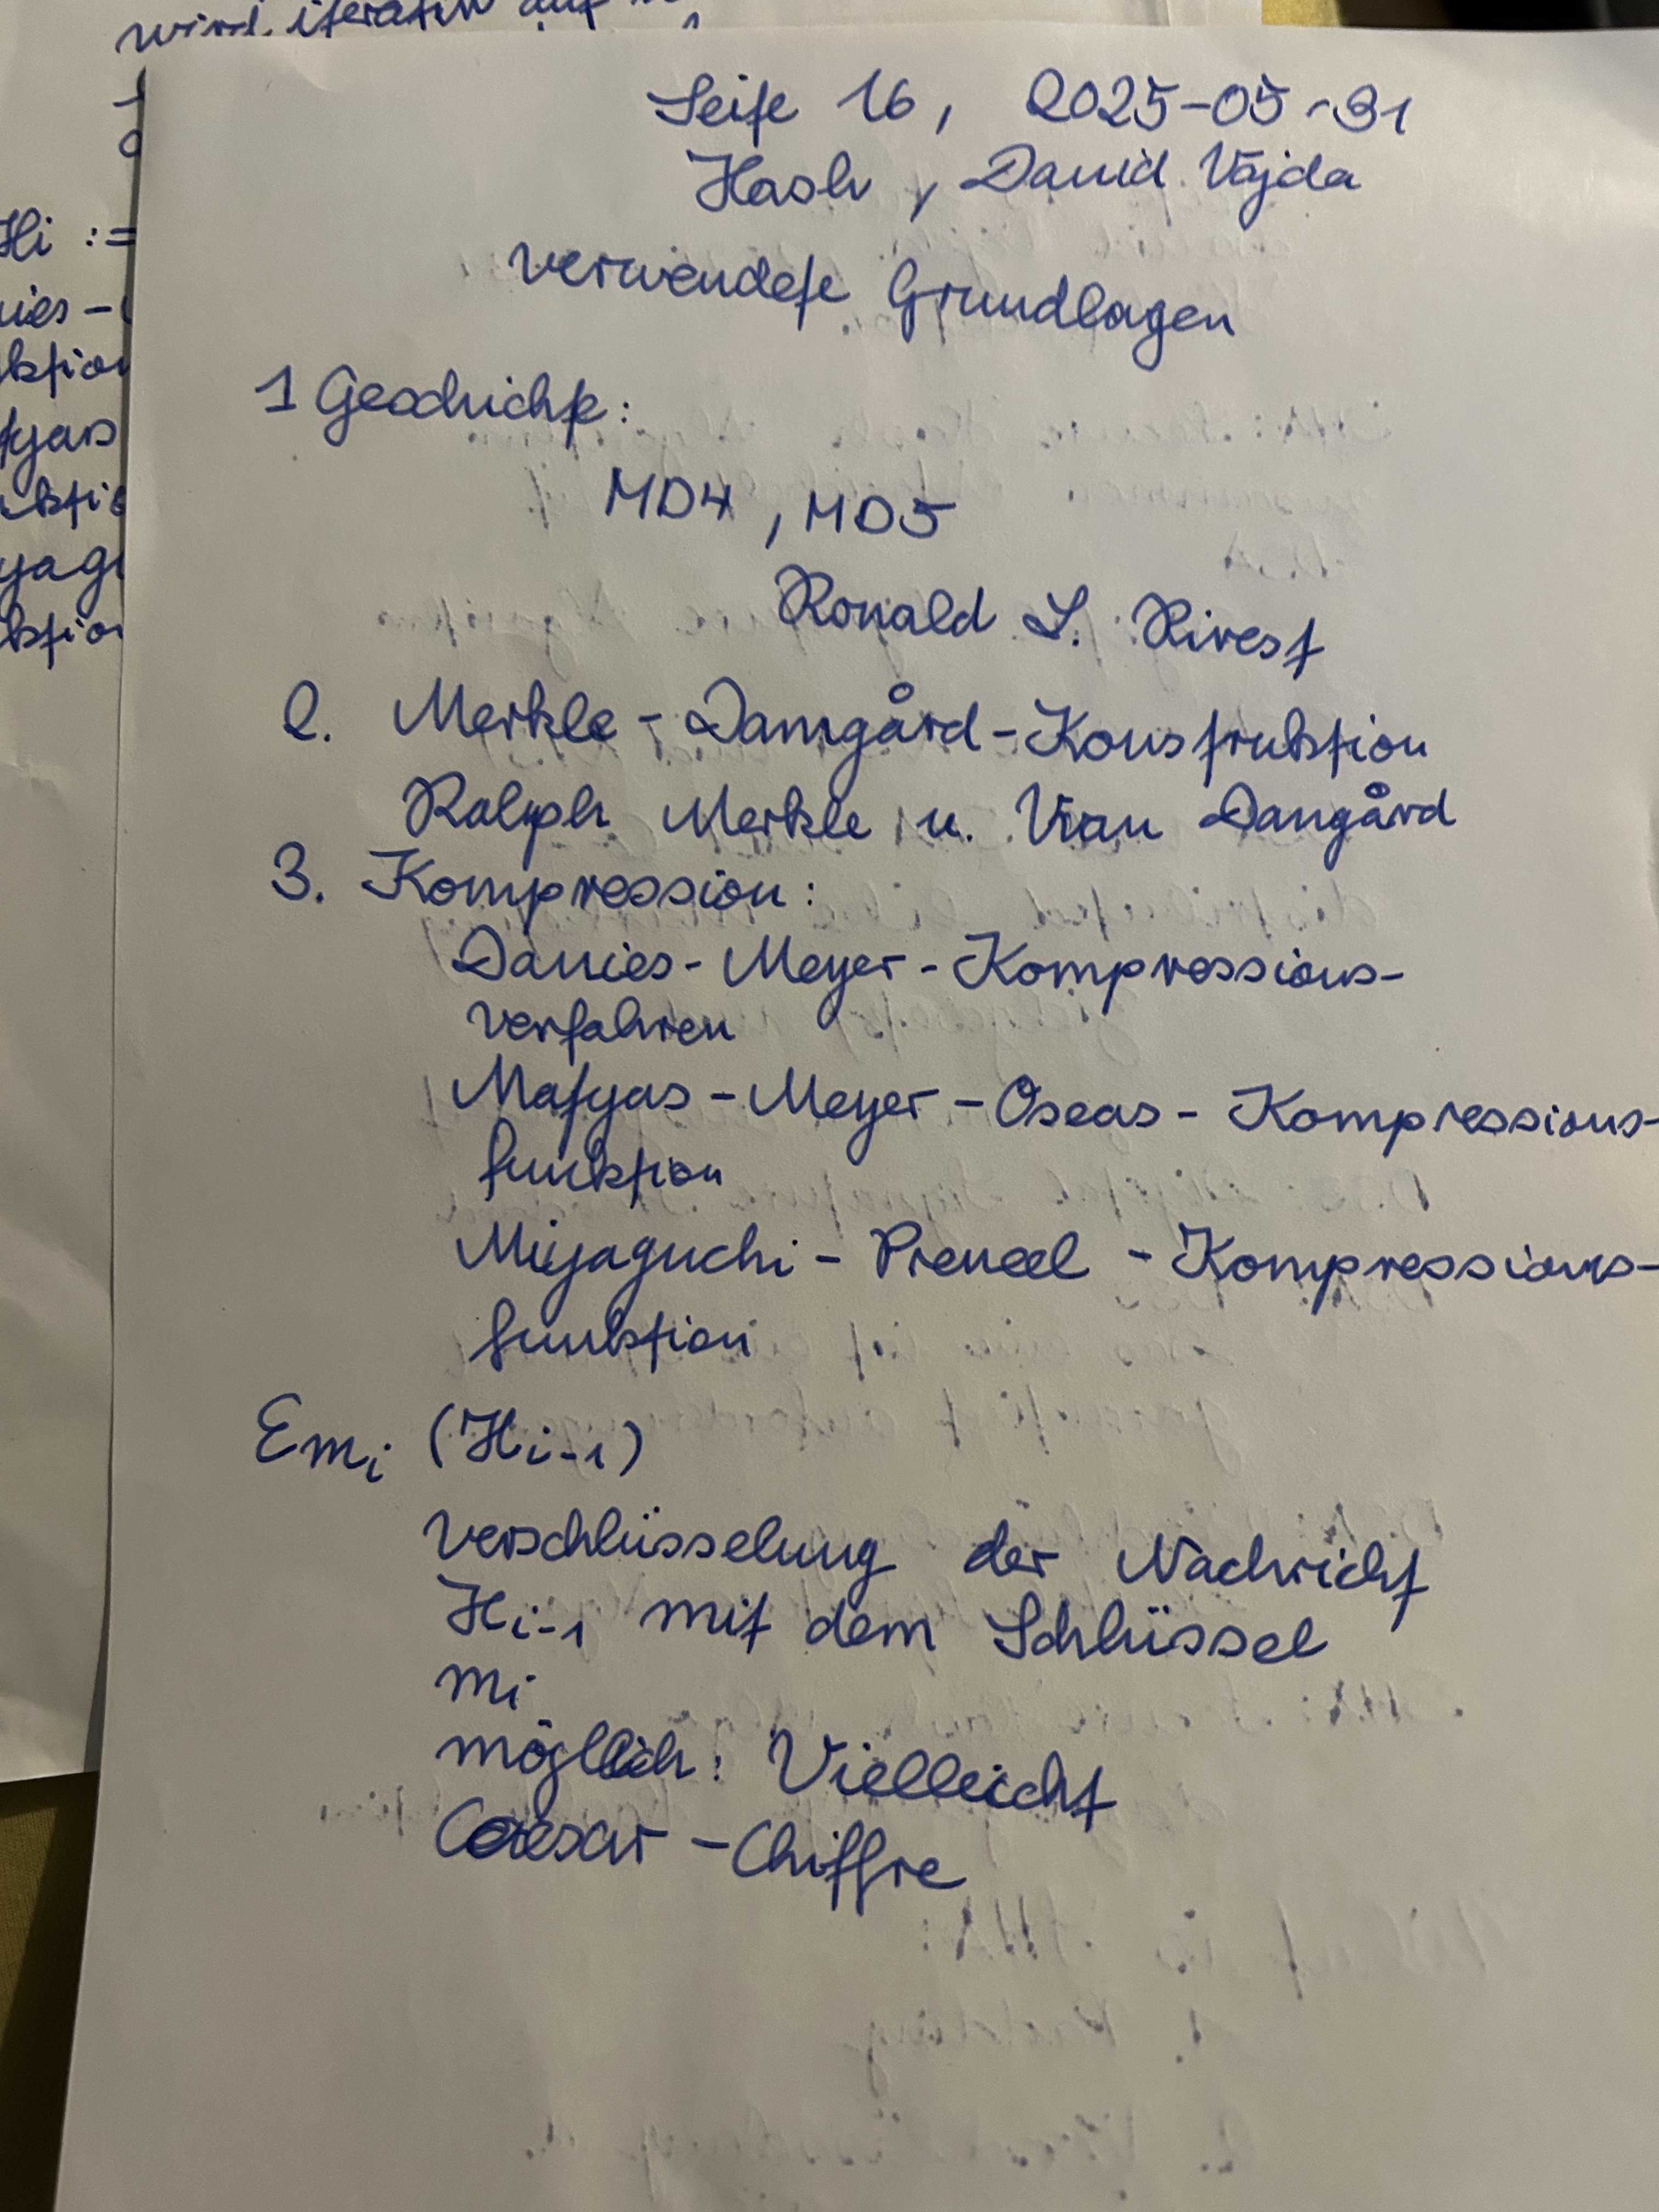 wird iterativ auf
Hi :=
ktion
tyas
yagu
ktion
Seite 16, 2025-05-31
Hash, David Vajda
verwendete Grundlagen
1 Geschichte:
MD4, MD5
Ronald L. Rivest
2. Merkle-Damgård-Konstruktion
Ralph Merkle u. Ivan Damgård
3. Kompression:
Davies-Meyer-Kompressions-
verfahren
Matyas-Meyer-Oseas-Kompressions-
funktion
Miyaguchi-Preneel-Kompressions-
funktion
Emi (Hi-1)
Verschlüsselung der Nachricht
Hi-1 mit dem Schlüssel
mi
möglich: Vielleicht
Caesar-Chiffre